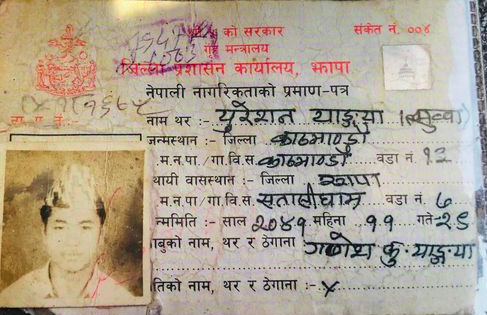 को सरकार संकेत नं. ००४
गृह मन्त्रालय
जिल्ला प्रशासन कार्यालय, झापा
नेपाली नागरिकताको प्रमाण-पत्र
ना. प्र. नं.
नाम थर :- युरेशन याङ्या
जन्मस्थान :- जिल्ला काठमाण्डौ
म.न.पा./गा.वि.स. काठमाण्डौ वडा नं. १२
थायी वासस्थान :- जिल्ला झापा
म.पा./गा.वि.स. सतासीधाम वडा नं. ७
न्ममिति :- साल २०४१ महिना ११ गते २८
बाबुको नाम, थर र ठेगाना गणेश कु. याङ्या
तिको नाम, थर र ठेगाना :- x